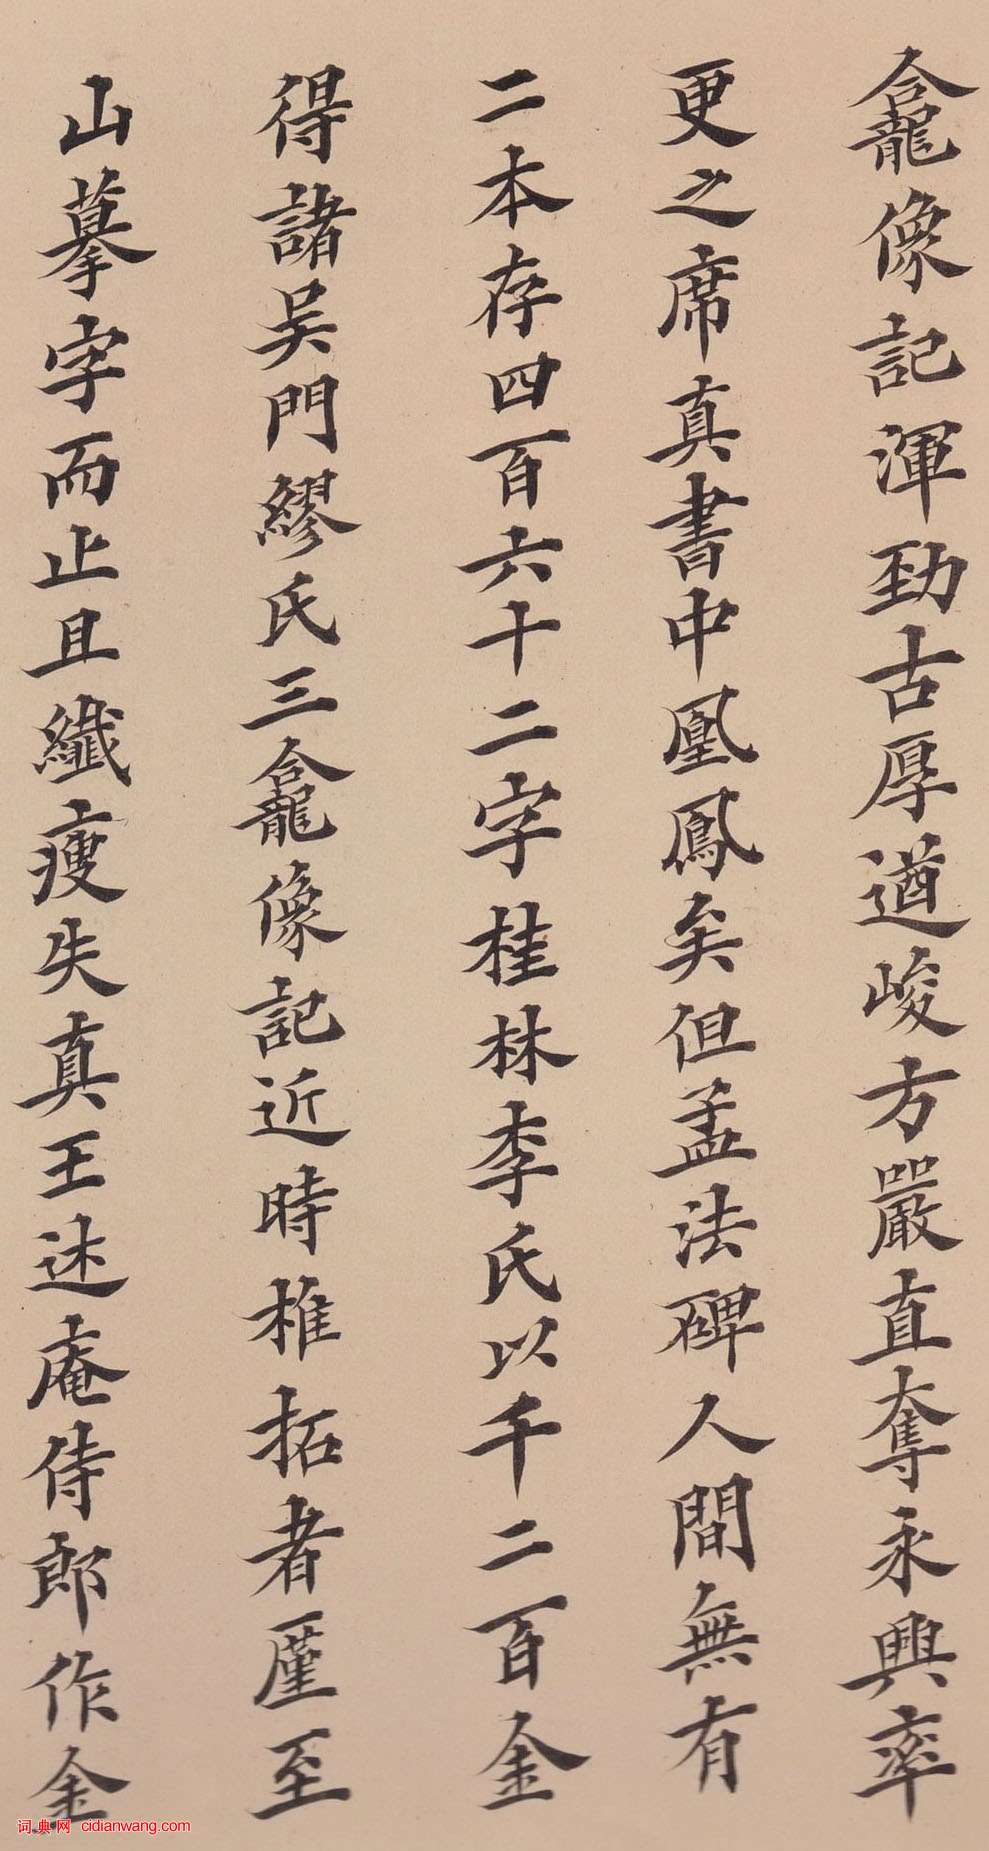 龕像記渾勁古厚遒峻方嚴直奪永興率
更之席真書中凰鳳矣但孟法碑人間無有
二本存四百六十二字桂林李氏以千二百金
得諸吳門繆氏三龕像記近時椎拓者厪至
山摹字而止且纖瘦失真王述庵侍郎作金
词典网 cidianwang.com